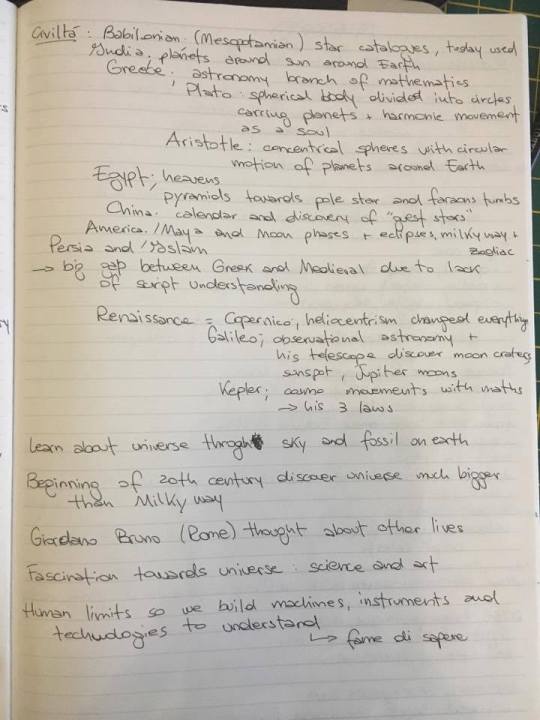 Civiltá: Babilonian (Mesopotamian) star catalogues, today used
India; planets around sun around Earth
Greece; astronomy branch of mathematics
Plato: spherical body divided into circles
carring planets + harmonic movement
as a soul
Aristotle: concentrical spheres with circular
motion of planets around Earth
Egypt; heavens
pyramids towards pole star and faraons tumbs
China: calendar and discovery of "guest stars"
America: Maya and Moon phases + eclipses, milky way +
zodiac
Persia and Islam
→ big gap between Greek and Medieval due to lack
of script understanding
Renaissance = Copernico; heliocentrism changed everything
Galileo; observational astronomy +
his telescope discover moon craters
sunspot, Jupiter moons
Kepler; cosmo movements with maths
→ his 3 laws
Learn about universe through sky and fossil on earth
Beginning of 20th century discover universe much bigger
than Milky way
Giordano Bruno (Rome) thought about other lives
Fascination towards universe: science and art
Human limits so we build machines, instruments and
technologies to understand
↳ fame di sapere